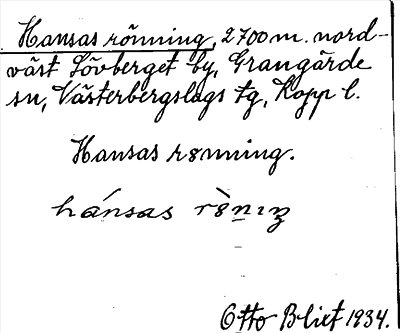 Hansas rönning, 2700 m. nord-
väst Lövberget by, Grangärde
sn, Västerbergslags tg, Kopp l.
Hansas rønning.
hánsas rø̀nıŋ
Otto Blixt 1934.